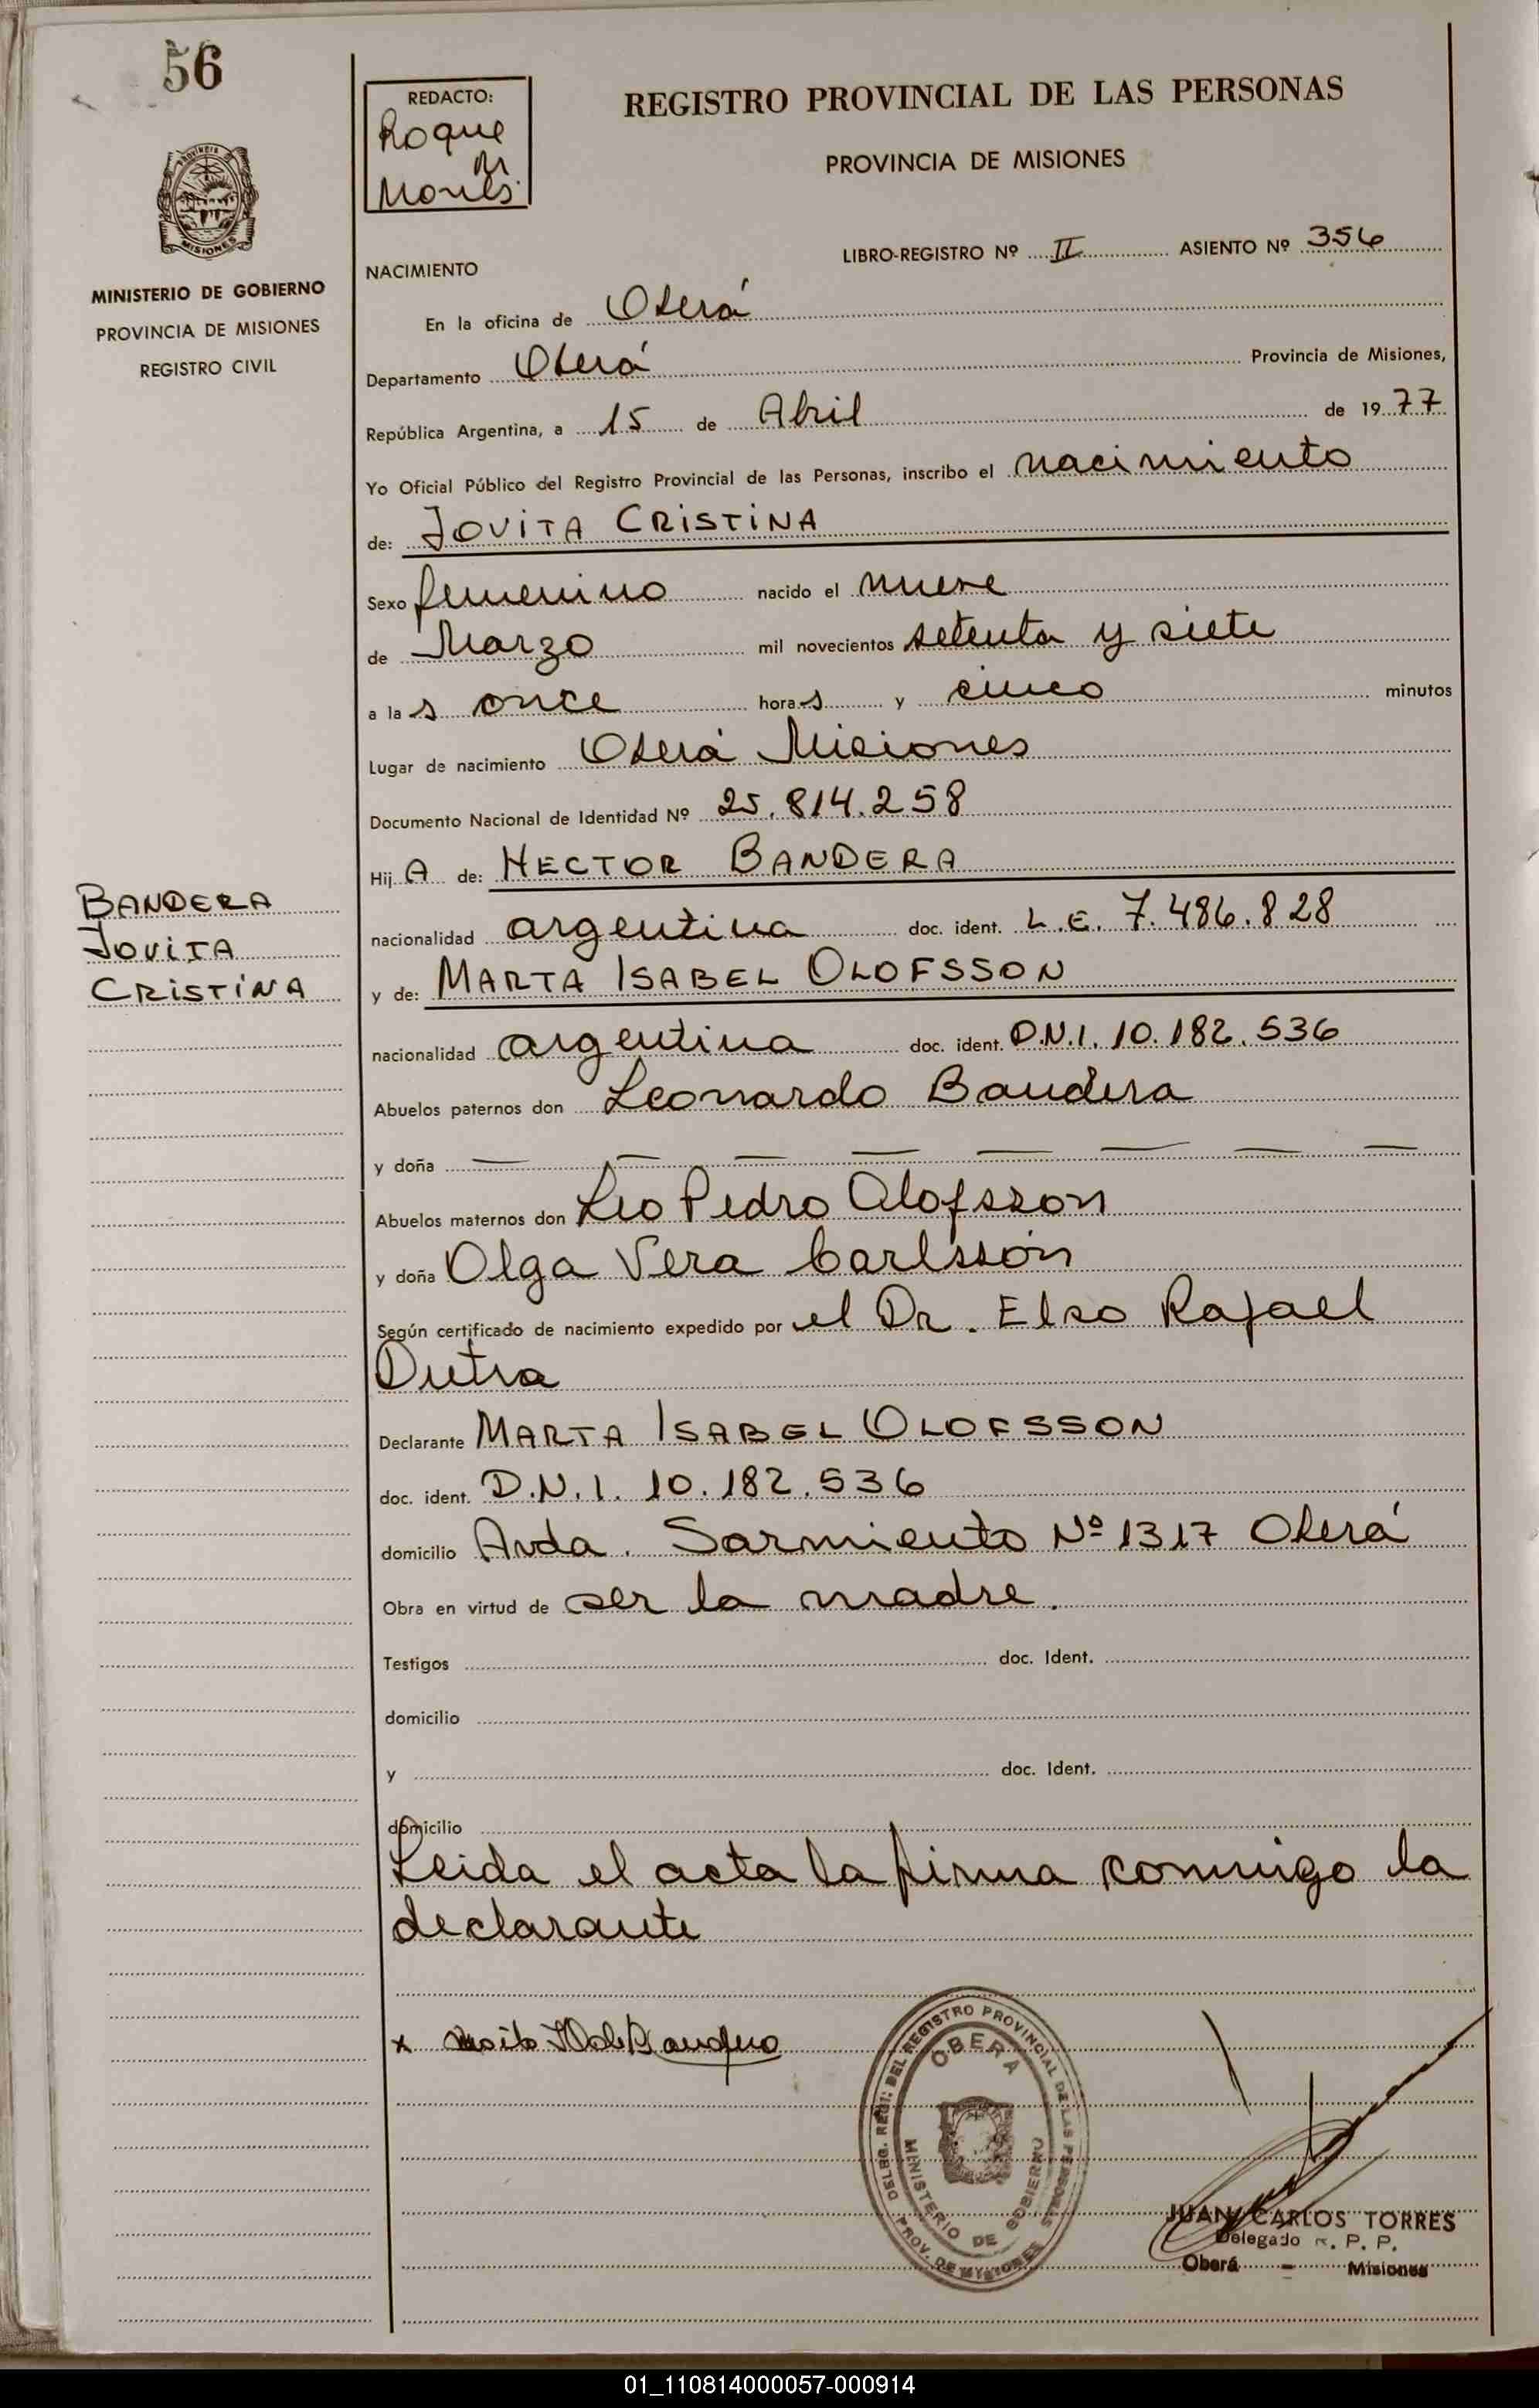 56
REDACTO:
Roque
M
REGISTRO PROVINCIAL DE LAS PERSONAS
PROVINCIA DE MISIONES
LIBRO-REGISTRO Nº II ASIENTO Nº 356
NACIMIENTO
MINISTERIO DE GOBIERNO
PROVINCIA DE MISIONES
REGISTRO CIVIL
En la oficina de Oberá
Departamento Oberá Provincia de Misiones,
República Argentina, a 15 de Abril de 1977
Yo Oficial Público del Registro Provincial de las Personas, inscribo el nacimiento
de: JOVITA CRISTINA
Sexo femenino nacido el nueve
de Marzo mil novecientos setenta y siete
a las once horas y cinco minutos
Lugar de nacimiento Oberá Misiones
Documento Nacional de Identidad Nº 25.814.258
Hij A de: HECTOR BANDERA
BANDERA
JOVITA
CRISTINA
nacionalidad argentina doc. ident. L.E. 7.486.828
y de: MARTA ISABEL OLOFSSON
nacionalidad argentina doc. ident. D.N.I. 10.182.536
Abuelos paternos don Leonardo Bandera
y doña — — — — — — — —
Abuelos maternos don Leo Pedro Olofsson
y doña Olga Vera Carlsson
Según certificado de nacimiento expedido por el Dr. Elso Rafael
Dutra
Declarante MARTA ISABEL OLOFSSON
doc. ident. D.N.I. 10.182.536
domicilio Avda. Sarmiento Nº 1317 Oberá
Obra en virtud de ser la madre.
Testigos doc. Ident.
domicilio
y doc. Ident.
domicilio
Leida el acta la firma conmigo la
declarante
x
DELEG. REGI: DEL REGISTRO PROVINCIAL DE LAS PERSONAS
OBERA
MINISTERIO DE GOBIERNO
PROV. DE MISIONES
JUAN CARLOS TORRES
Delegado R. P. P.
Oberá - Misiones
01_110814000057-000914